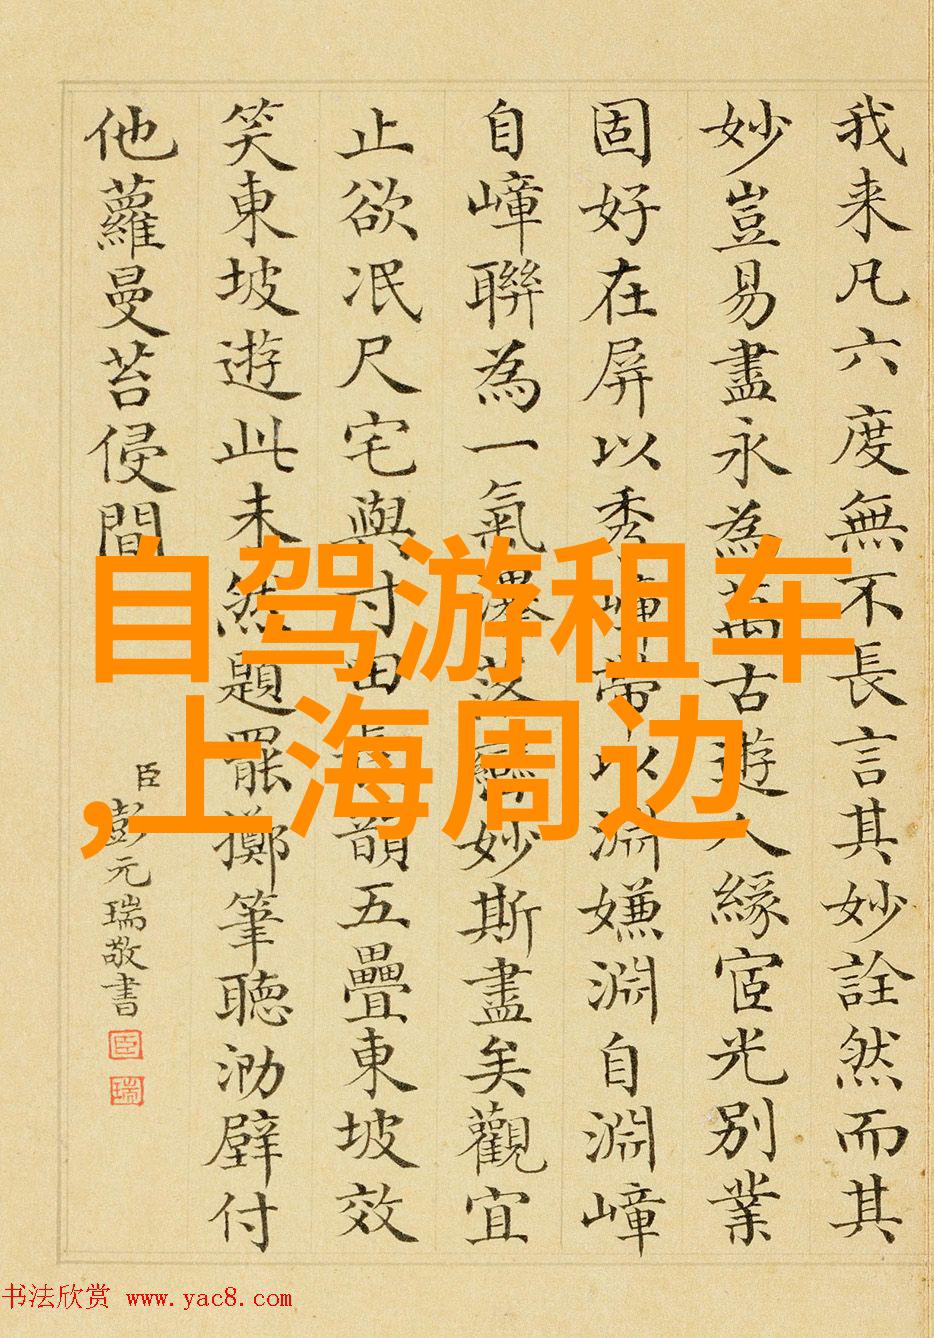 我来凡六度無不長言其妙詮然而其
妙豈易盡永為萬古遊人緣宧光別業
固好在屏以秀嶂帶以淵嫌淵自淵嶂
自嶂聯為一氣瀑落妙斯盡矣觀宜
止欲冺尺宅與寸田韻五疊東坡效
笑東坡遊此未然題罷擲筆聽泐壁付
他蘿曼苔侵間
臣彭元瑞敬書
臣
瑞
自驾游租车
,上海周边
书法欣赏 www.yac8.com